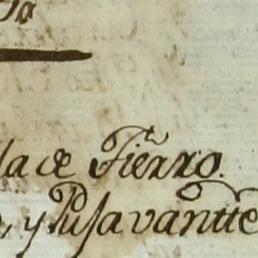 la de Fierro.
, y Pusavantte